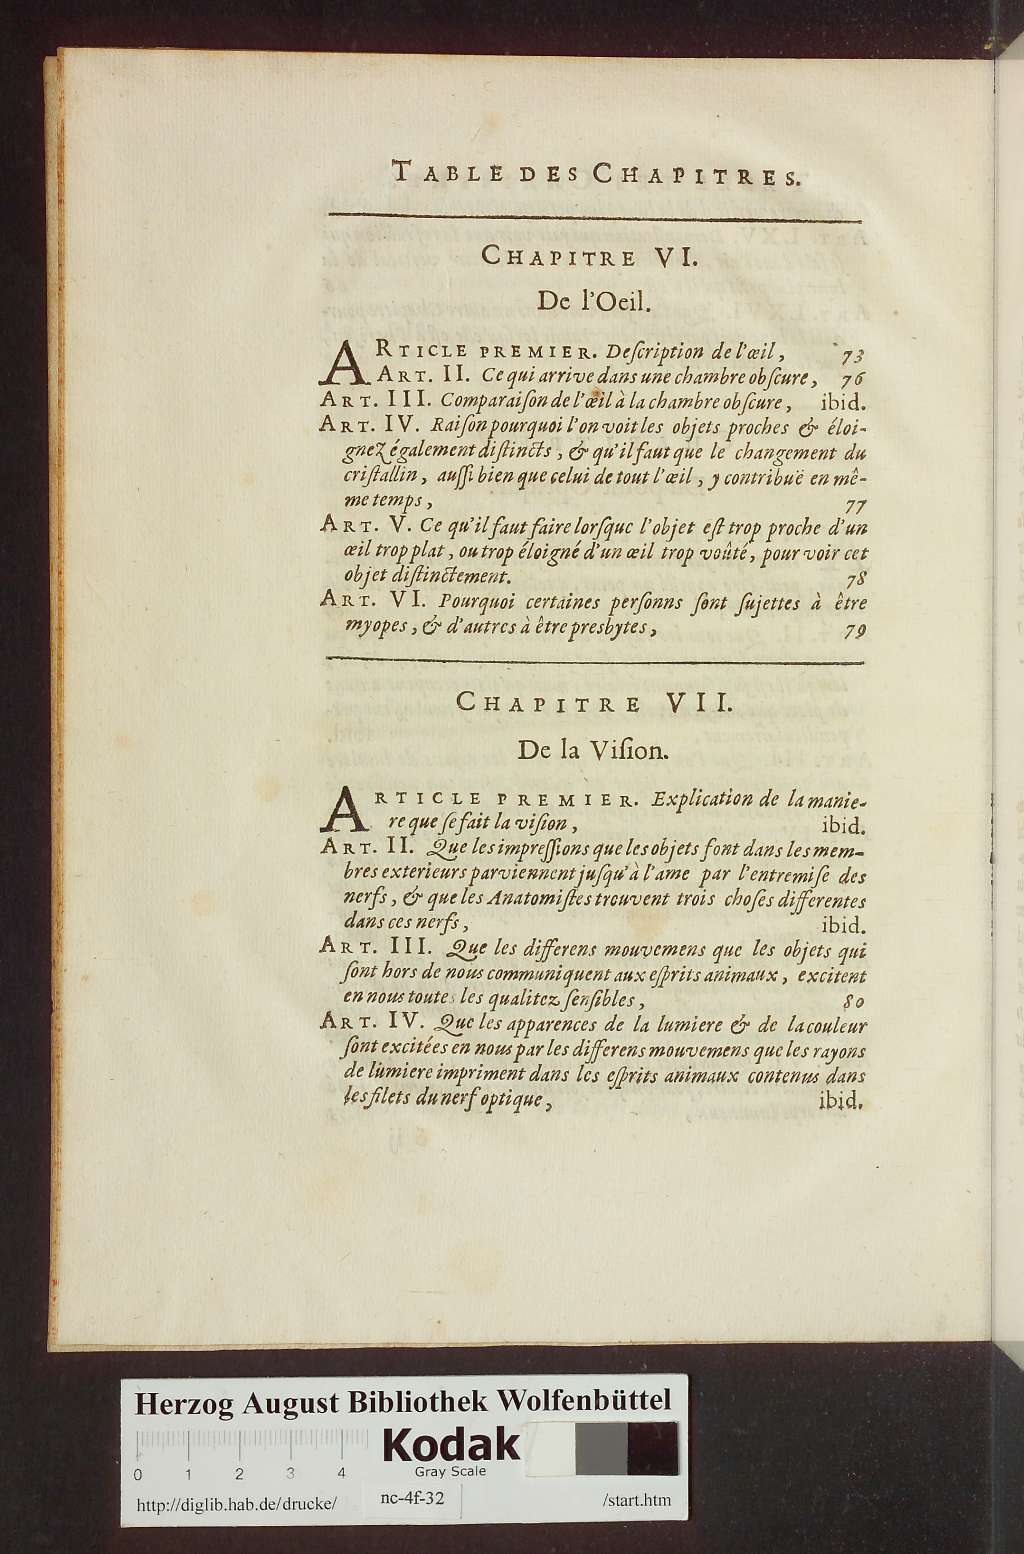 TABLE DES CHAPITRES.
CHAPITRE VI.
De l'Oeil.
ARTICLE PREMIER. Deſcription de l'œil, 73
ART. II. Ce qui arrive dans une chambre obſcure, 76
ART. III. Comparaiſon de l'œil à la chambre obſcure, ibid.
ART. IV. Raiſon pourquoi l'on voit les objets proches & éloi-
gnez également diſtincts, & qu'il faut que le changement du
criſtallin, auſſi bien que celui de tout l'œil, y contribuë en mê-
me temps, 77
ART. V. Ce qu'il faut faire lorſque l'objet eſt trop proche d'un
œil trop plat, ou trop éloigné d'un œil trop voûté, pour voir cet
objet diſtinctement. 78
ART. VI. Pourquoi certaines perſonns ſont ſujettes à être
myopes, & d'autres à être presbytes, 79
CHAPITRE VII.
De la Viſion.
ARTICLE PREMIER. Explication de la manie-
re que ſe fait la viſion, ibid.
ART. II. Que les impreſſions que les objets font dans les mem-
bres exterieurs parviennent juſqu'à l'ame par l'entremiſe des
nerfs, & que les Anatomiſtes trouvent trois choſes differentes
dans ces nerfs, ibid.
ART. III. Que les differens mouvemens que les objets qui
ſont hors de nous communiquent aux eſprits animaux, excitent
en nous toutes les qualitez ſenſibles, 80
ART. IV. Que les apparences de la lumiere & de la couleur
ſont excitées en nous par les differens mouvemens que les rayons
de lumiere impriment dans les eſprits animaux contenus dans
les filets du nerf optique, ibid.
Herzog August Bibliothek Wolfenbüttel
Kodak
Gray Scale
0 1 2 3 4
http://diglib.hab.de/drucke/ nc-4f-32 /start.htm